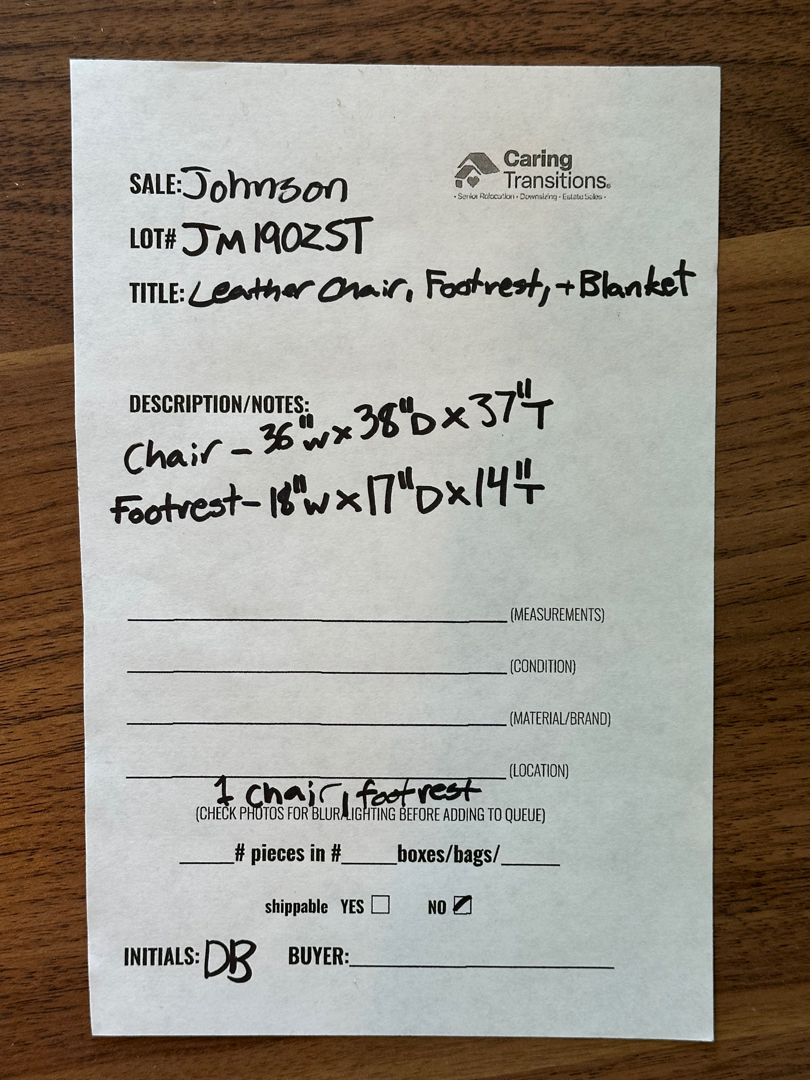 Caring
Transitions®
• Senior Relocation • Downsizing • Estate Sales •
SALE: Johnson
LOT# JM1902ST
TITLE: Leather Chair, Footrest, + Blanket
DESCRIPTION/NOTES:
Chair – 36"W x 38"D x 37"T
Footrest – 18"W x 17"D x 14"T
(MEASUREMENTS)
(CONDITION)
(MATERIAL/BRAND)
(LOCATION)
1 chair, footrest
(CHECK PHOTOS FOR BLUR/LIGHTING BEFORE ADDING TO QUEUE)
_____# pieces in #_____boxes/bags/_____
shippable YES ☐ NO ☑
INITIALS: DB BUYER:_____